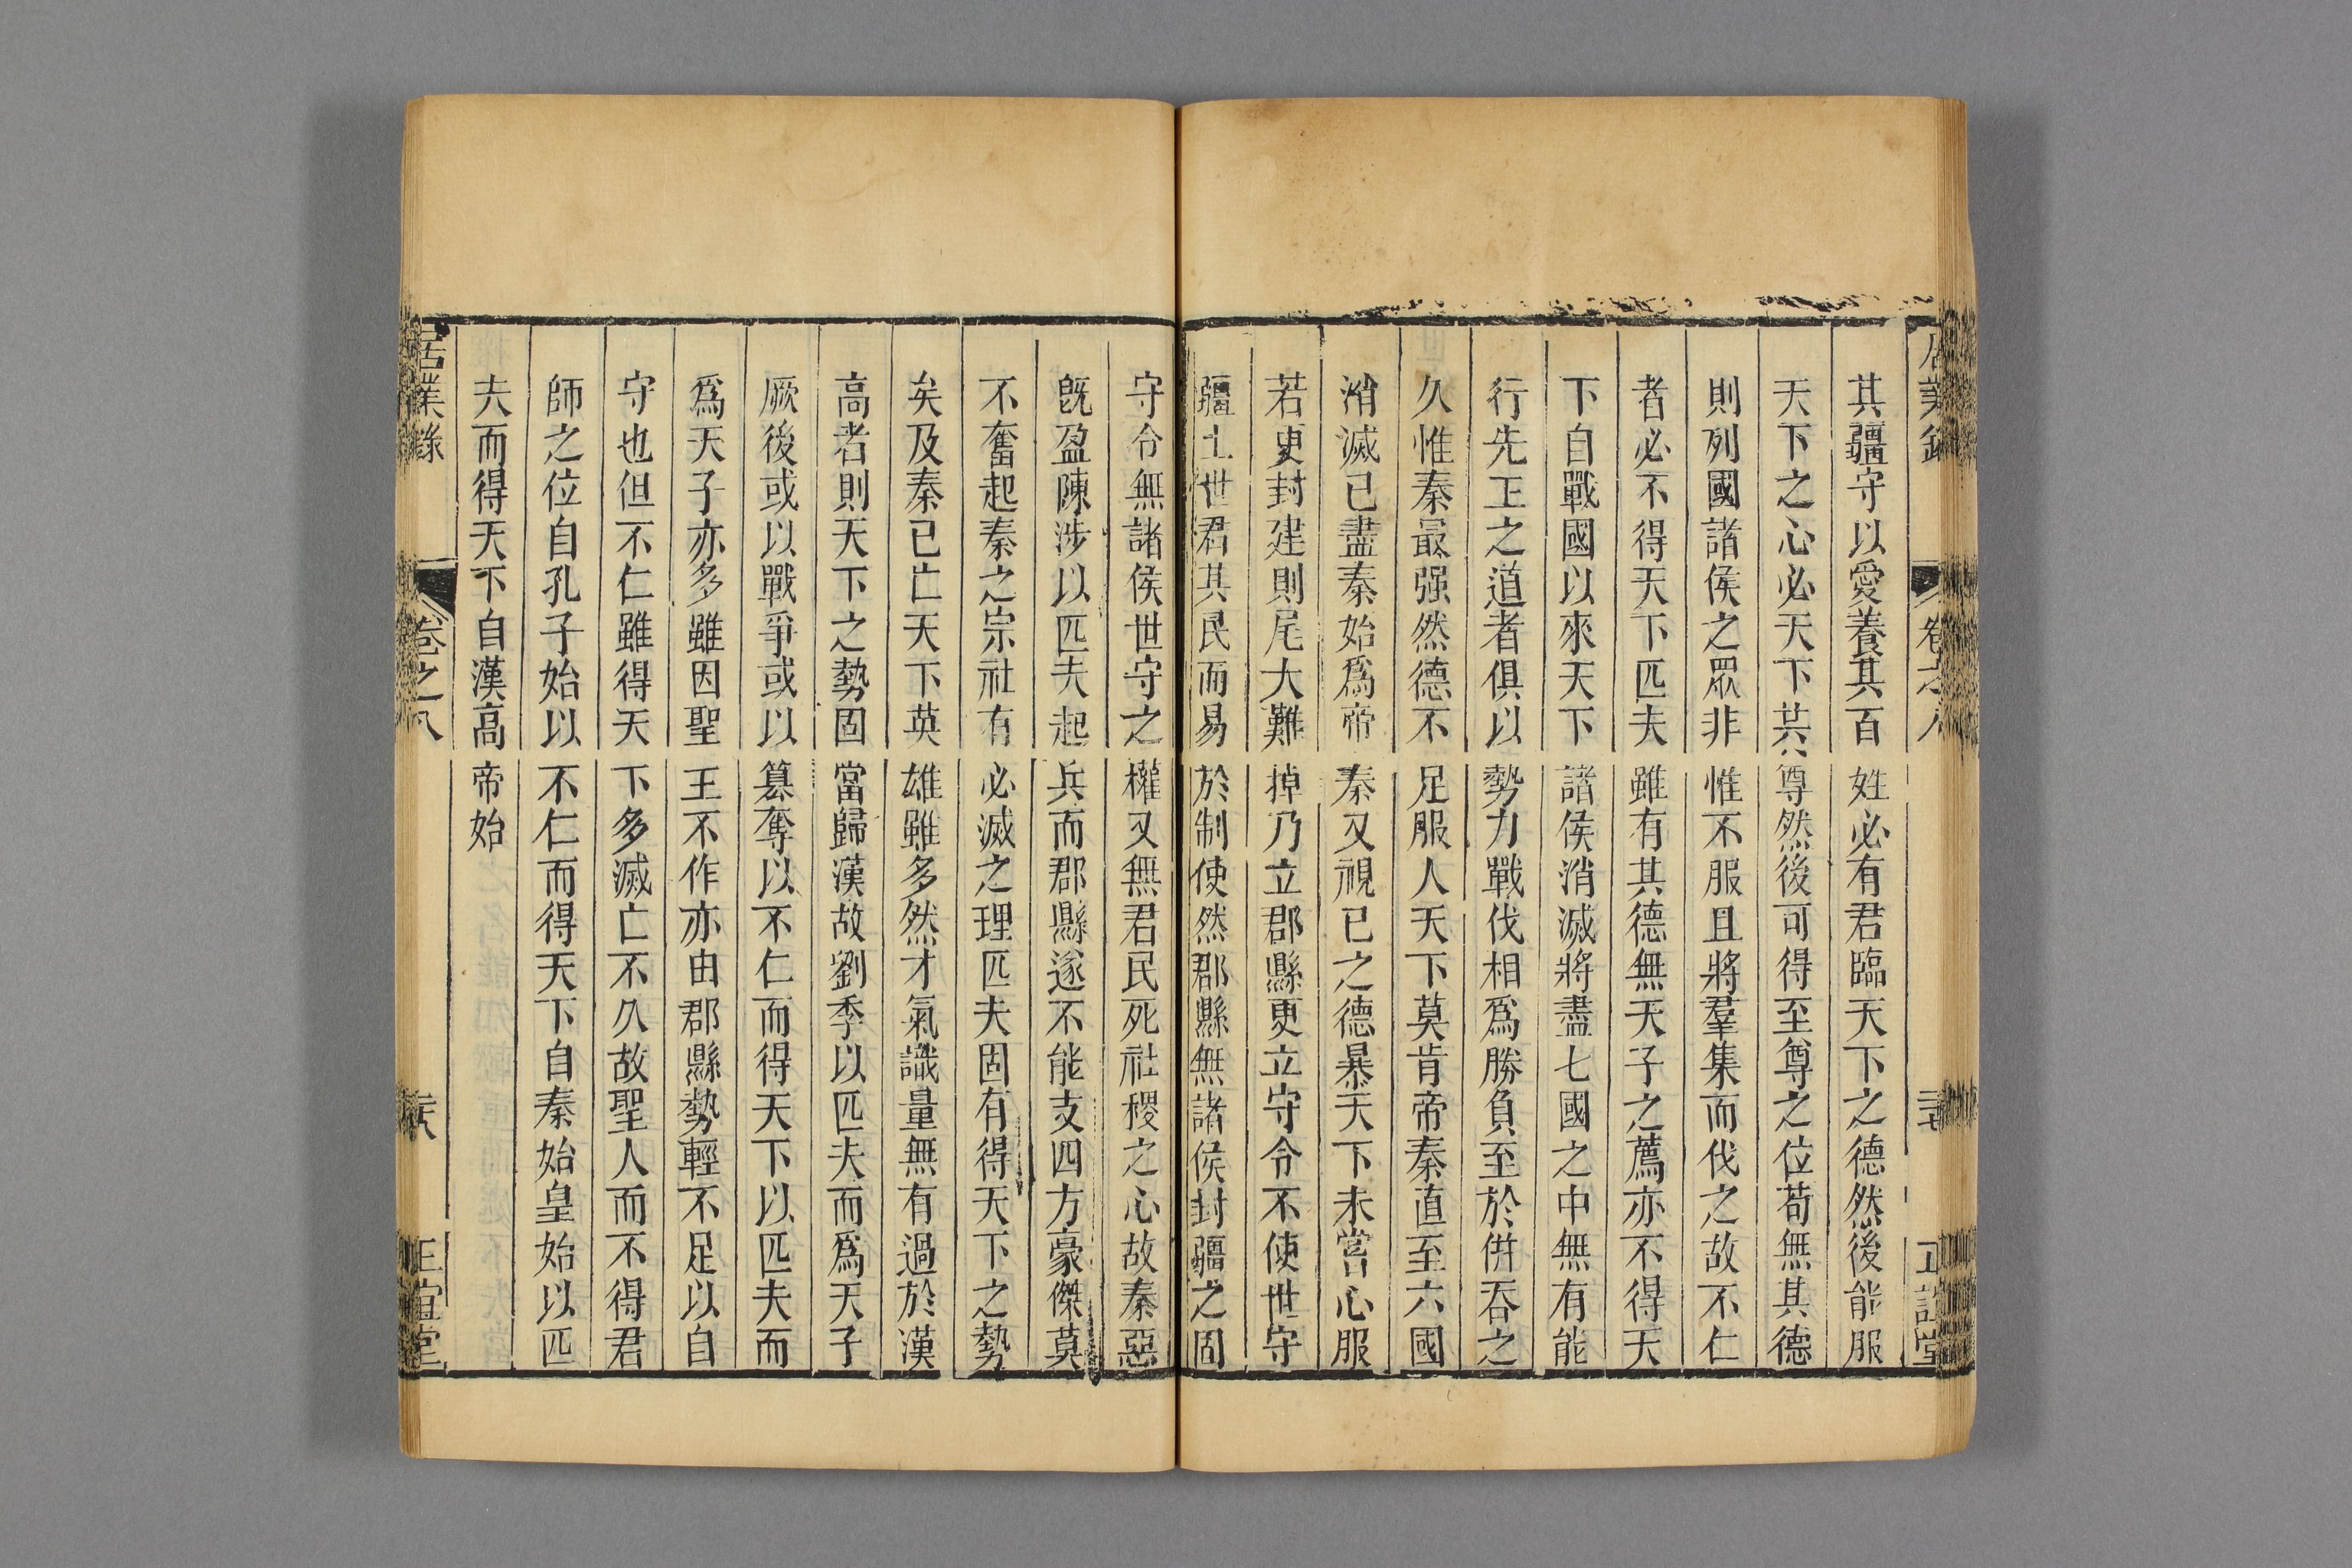 居業錄 卷之八 正誼堂
其疆守以愛養其百姓必有君臨天下之德然後能服
天下之心必天下共尊然後可得至尊之位苟無其德
則列國諸侯之眾非惟不服且將羣集而伐之故不仁
者必不得天下匹夫雖有其德無天子之薦亦不得天
下自戰國以來天下諸侯消滅將盡七國之中無有能
行先王之道者俱以勢力戰伐相爲勝負至於倂吞之
久惟秦最强然德不足服人天下莫肯帝秦直至六國
消滅已盡秦始爲帝秦又視已之德暴天下未嘗心服
若更封建則尾大難掉乃立郡縣更立守令不使世守
疆土世君其民而易於制使然郡縣無諸侯封疆之固
守令無諸侯世守之權又無君民死社稷之心故秦惡
旣盈陳涉以匹夫起兵而郡縣遂不能支四方豪傑莫
不奮起秦之宗社有必滅之理匹夫固有得天下之勢
矣及秦已亡天下英雄雖多然才氣識量無有過於漢
高者則天下之勢固當歸漢故劉季以匹夫而爲天子
厥後或以戰爭或以篡奪以不仁而得天下以匹夫而
爲天子亦多雖因聖王不作亦由郡縣勢輕不足以自
守也但不仁雖得天下多滅亡不久故聖人而不得君
師之位自孔子始以不仁而得天下自秦始皇始以匹
夫而得天下自漢高帝始
居業錄 卷之八 正誼堂